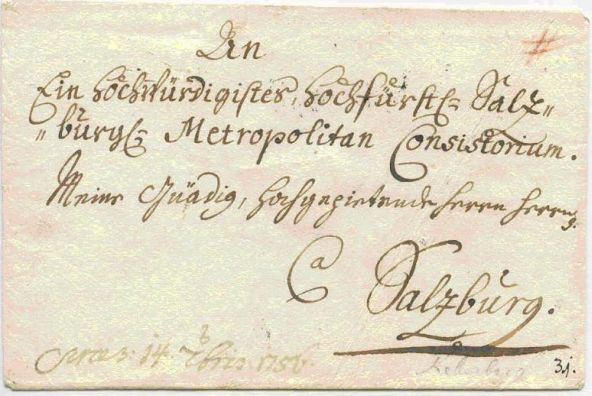 An
Ein höchwürdigistes, höchfürstl: Saltz=
=burgl: Metropolitan Consistorium.
Meine Gnädig, hochgepietende Herrn Herrn
à Saltzburg.
14 1756
31.